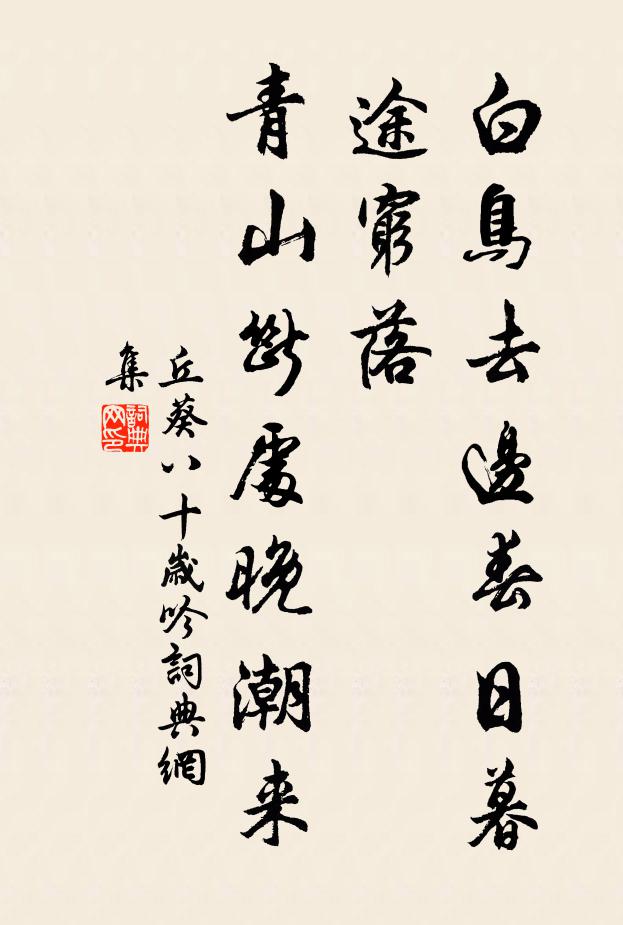 白鳥去邊春日暮
途窮落
青山斷處晚潮来
丘葵八十歲吟詞典網
集
詞典
网印